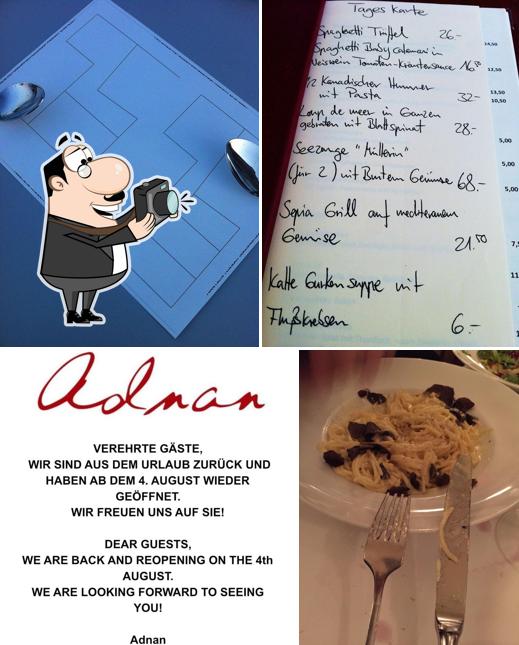 Tages Karte
Spaghetti Trüffel 26.-
Spaghetti Baby calamari in
Weisswein Tomaten-Kräutersauce 16.50
1/2 Kanadischer Hummer
mit Pasta 32.-
Loup de meer in Ganzen
gebraten mit Blattspinat 28.-
Seezunge "Müllerin"
(für 2) mit Buntem Gemüse 68.-
Sepia Grill auf mediteranem
Gemüse 21.00
Kalte Gurkensuppe mit
Flußkrebsen 6.-
14,50
12,50
13,50
10,50
5,00
5,00
5,00
Adnan
VEREHRTE GÄSTE,
WIR SIND AUS DEM URLAUB ZURÜCK UND
HABEN AB DEM 4. AUGUST WIEDER
GEÖFFNET.
WIR FREUEN UNS AUF SIE!
DEAR GUESTS,
WE ARE BACK AND REOPENING ON THE 4th
AUGUST.
WE ARE LOOKING FORWARD TO SEEING
YOU!
Adnan